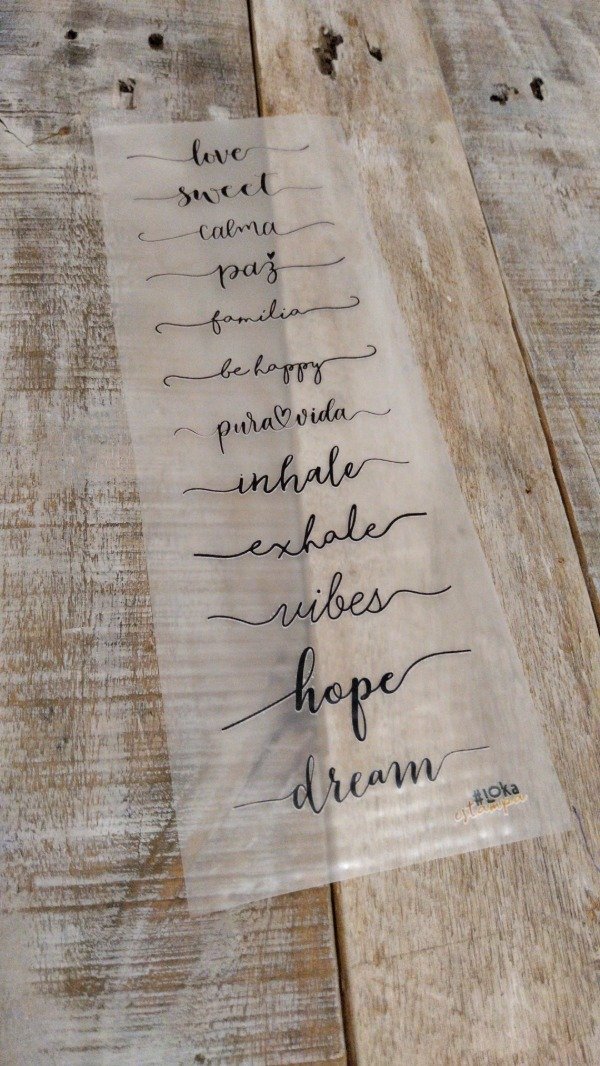 love
sweet
calma
paz
familia
be happy
pura vida
inhale
exhale
vibes
hope
dream
#LOKa
estampa